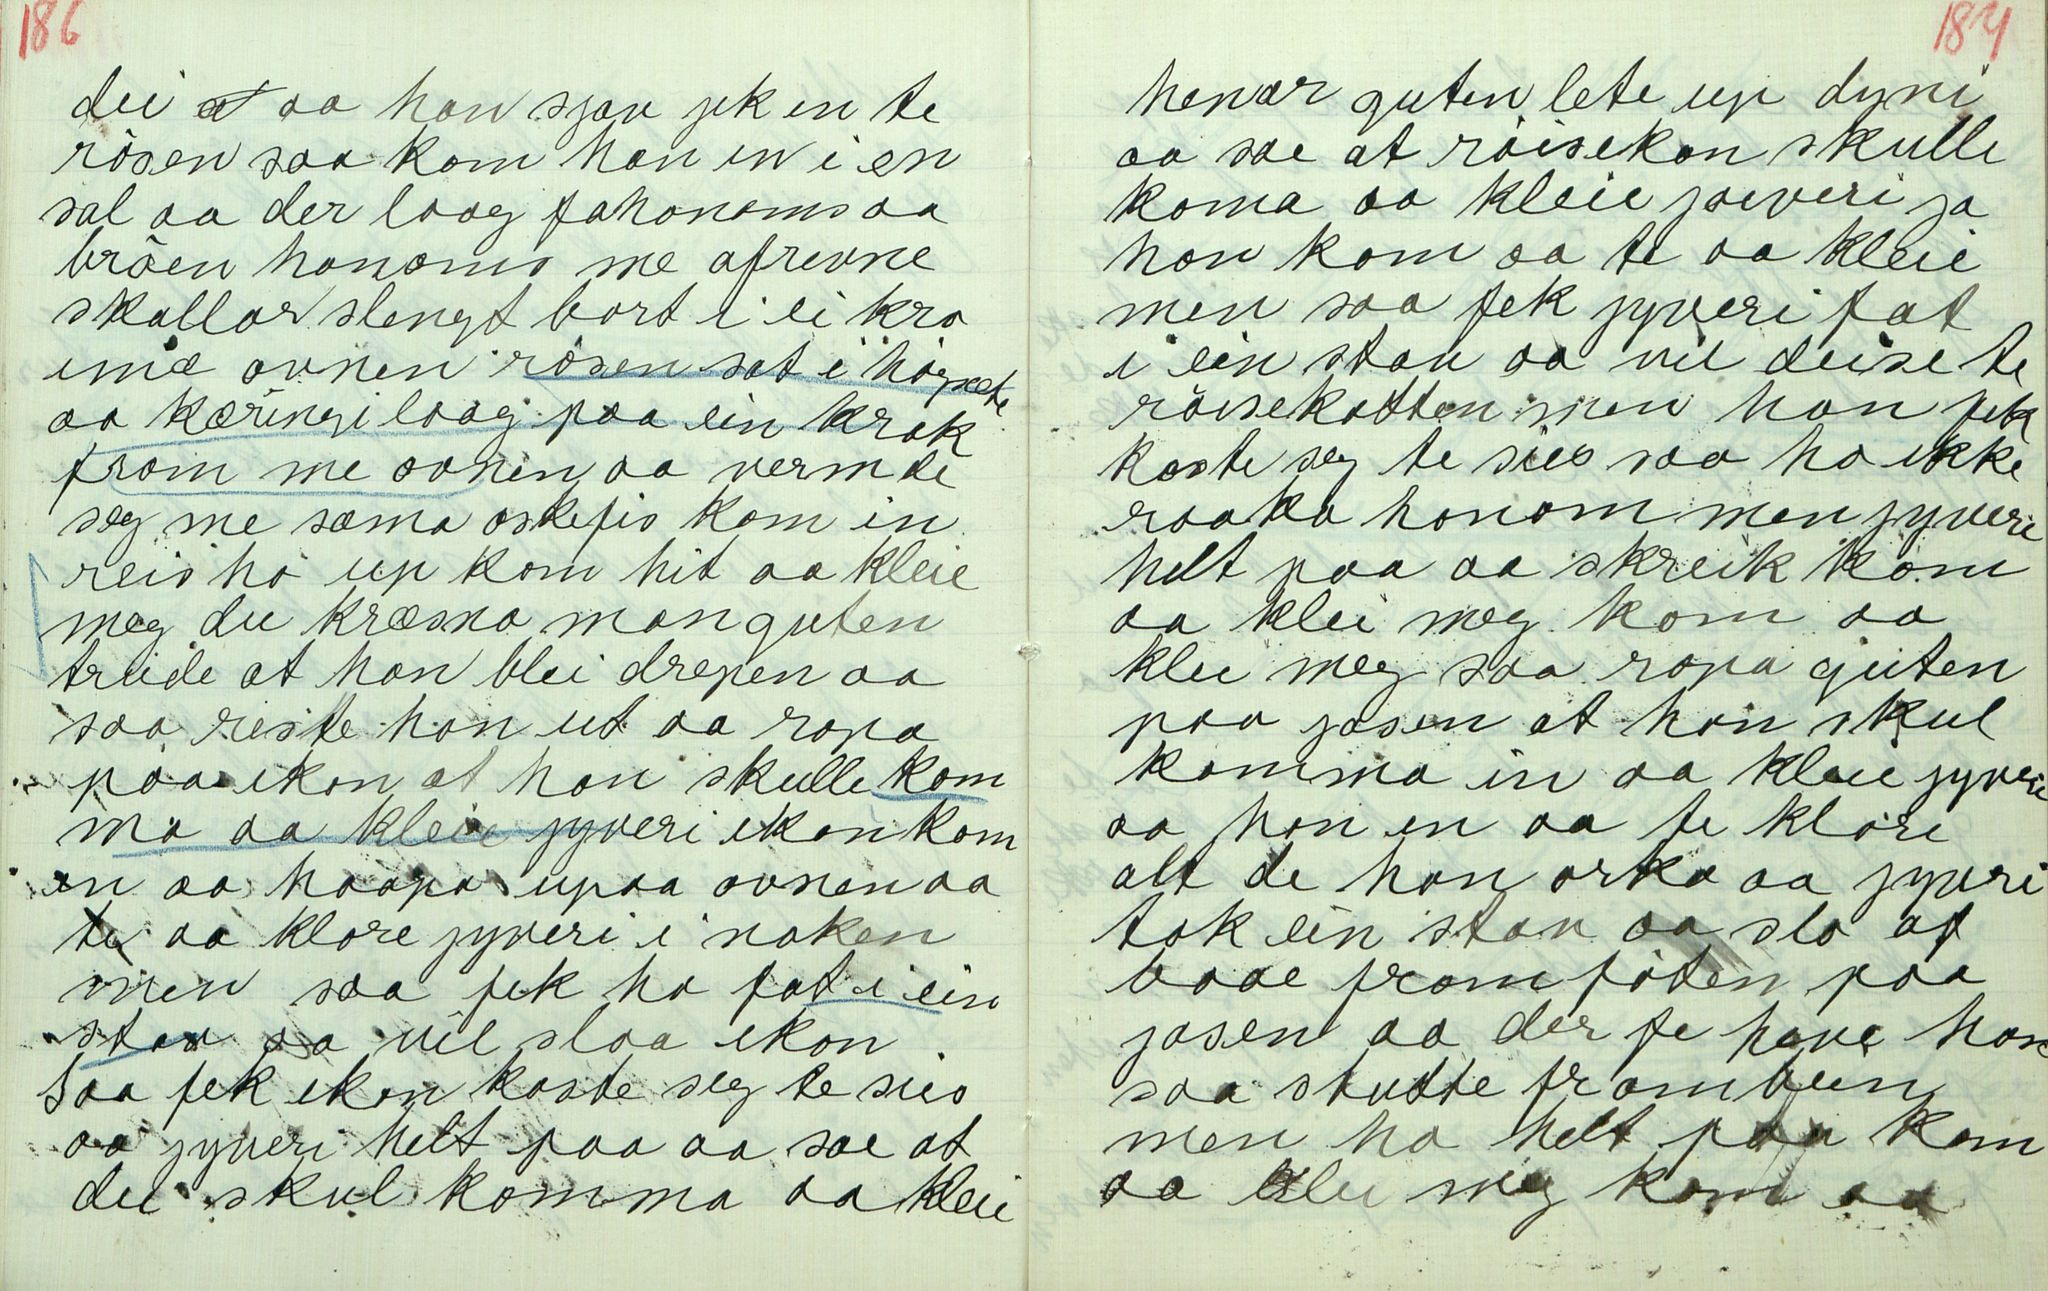 186
dei aa han sjav jek en te
røsen saa kom han en i en
sal aa der laag fahonoms aa
brøen honoms me afrevne
skallar slengt bort i ei kro
ime ovnen røsen sat i høgsete
aa kæringi laag paa ein krak
fram me ovnen aa vermde
seg me sama oskefis kom in
reis ho up kom hit aa kleie
meg du kræsma man guten
truide at han blei drepen aa
saa reiste han ut aa ropa
paa ikon at han skulle kom
ma aa kleie jyveri ikon kom
en aa haapa upaa ovnen aa
te aa klore jyveri i naken
men saa fek ho fat i ein
stav aa vil slaa ikon
saa fek ikon kaste seg te sies
aa jyveri helt paa aa sae at
dei skul komma aa kleie
184
henær guten lete up dyni
aa sae at røisekan skulle
koma aa kleie jæveri ja
han kom aa te aa kleie
men saa fek jyveri fat
i ein stav aa vil deise te
røisekatten men han fek
kaste seg te sies saa ho ikke
raaka honom men jyveri
helt paa aa skreik kom
aa klei meg kom aa
klei meg saa ropa guten
paa jasen at han skul
komma in aa kleie jyveri
aa han en aa te klore
alt de han orka aa jyveri
tok ein stav aa slo af
baae framføten paa
jasen aa der fe have han
saa stutte frambein
men ho helt paa kom
aa klei meg kom aa